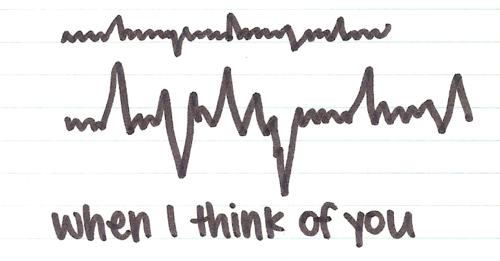 when I think of you